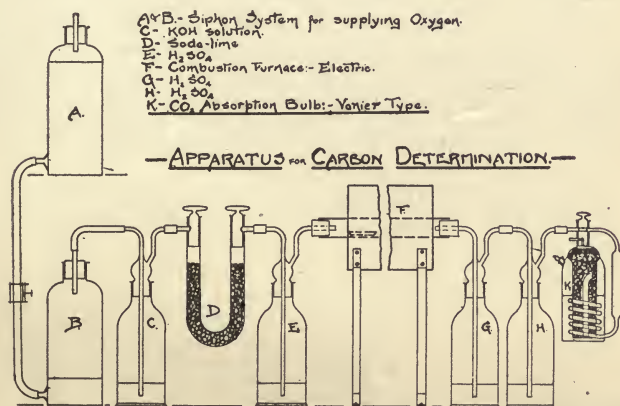 A&B.- Siphon System for supplying Oxygen.
C- KOH solution.
D- Soda-lime
E- H₂SO₄
F- Combustion Furnace:- Electric.
G- H₂SO₄
H- H₂SO₄
K- CO₂ Absorption Bulb:- Vanier Type.
—APPARATUS FOR CARBON DETERMINATION.—
A.
B.
C.
D
E.
F.
G.
H.
K